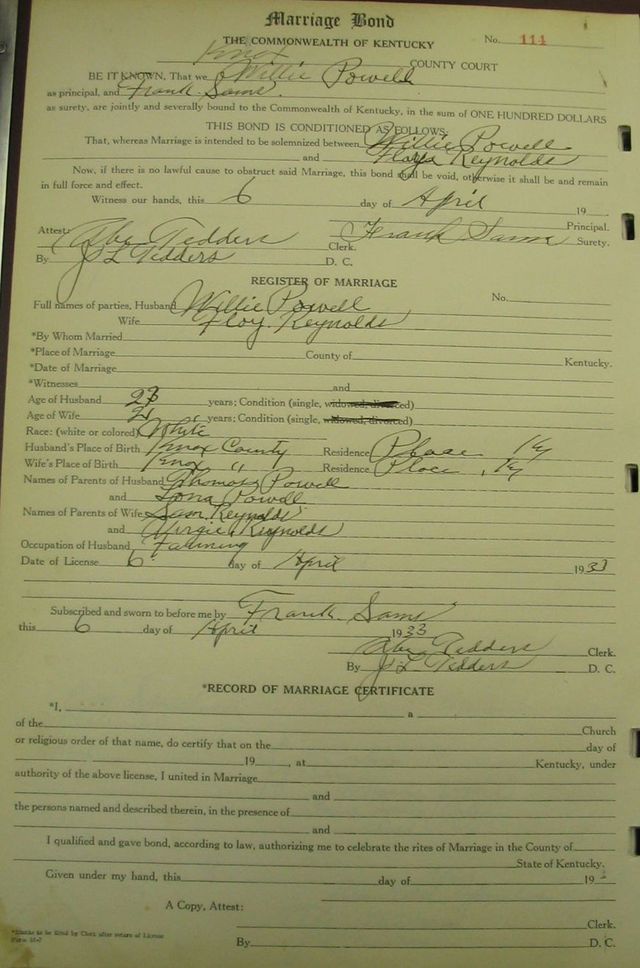 Marriage Bond
THE COMMONWEALTH OF KENTUCKY No. 114
Knox COUNTY COURT
BE IT KNOWN, That we Willie Powell
as principal, and Frank Sams
as surety, are jointly and severally bound to the Commonwealth of Kentucky, in the sum of ONE HUNDRED DOLLARS
THIS BOND IS CONDITIONED AS FOLLOWS
That, whereas Marriage is intended to be solemnized between Willie Powell
and Floya Reynolds
Now, if there is no lawful cause to obstruct said Marriage, this bond shall be void, otherwise it shall be and remain
in full force and effect.
Witness our hands, this 6 day of April 19
Principal.
Attest: Abe Tedders Clerk. Frank Sams Surety.
By J L Tedders D. C.
REGISTER OF MARRIAGE
Full names of parties, Husband Willie Powell No.
Wife Floy Reynolds
*By Whom Married
*Place of Marriage County of Kentucky.
*Date of Marriage
*Witnesses and
Age of Husband 23 years; Condition (single, widowed, divorced)
Age of Wife 21 years; Condition (single, widowed, divorced)
Race: (white or colored) White
Husband's Place of Birth Knox County Residence Place Ky
Wife's Place of Birth Knox " Residence Place, Ky
Names of Parents of Husband Thomas Powell
and Powell
Names of Parents of Wife Sam Reynolds
and Virgie Reynolds
Occupation of Husband Farming
Date of License 6 day of April 1933
Subscribed and sworn to before me by Frank Sams
this 6 day of April 1933
Abe Tedders Clerk.
By J L Tedders D. C.
*RECORD OF MARRIAGE CERTIFICATE
*I, a
of the Church
or religious order of that name, do certify that on the day of
19 , at Kentucky, under
authority of the above license, I united in Marriage
and
the persons named and described therein, in the presence of
and
I qualified and gave bond, according to law, authorizing me to celebrate the rites of Marriage in the County of
State of Kentucky.
Given under my hand, this day of 19
A Copy, Attest:
Clerk.
*Blanks to be filled by Clerk after return of License
By D. C.